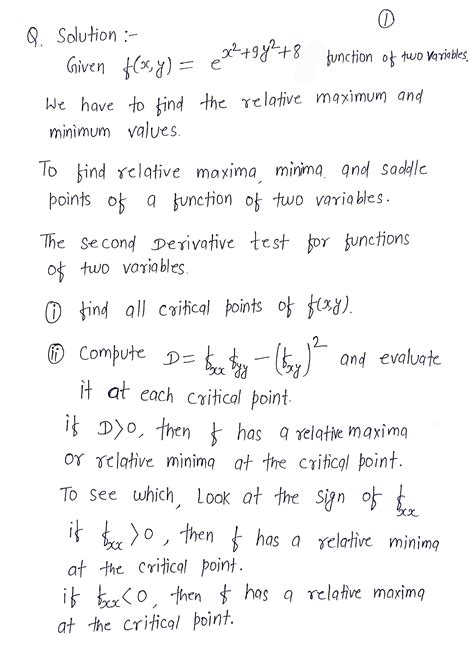 ①
Q. Solution :-
Given f(x,y) = e^{x²+9y²+8} function of two variables.
We have to find the relative maximum and
minimum values.
To find relative maxima, minima and saddle
points of a function of two variables.
The second Derivative test for functions
of two variables.
ⓘ find all critical points of f(x,y).
ⓘⓘ Compute D = f_{xx} f_{yy} - (f_{xy})² and evaluate
it at each critical point.
if D>0, then f has a relative maxima
or relative minima at the critical point.
To see which, Look at the sign of f_{xx}
if f_{xx} >0, then f has a relative minima
at the critical point.
if f_{xx}<0, then f has a relative maxima
at the critical point.